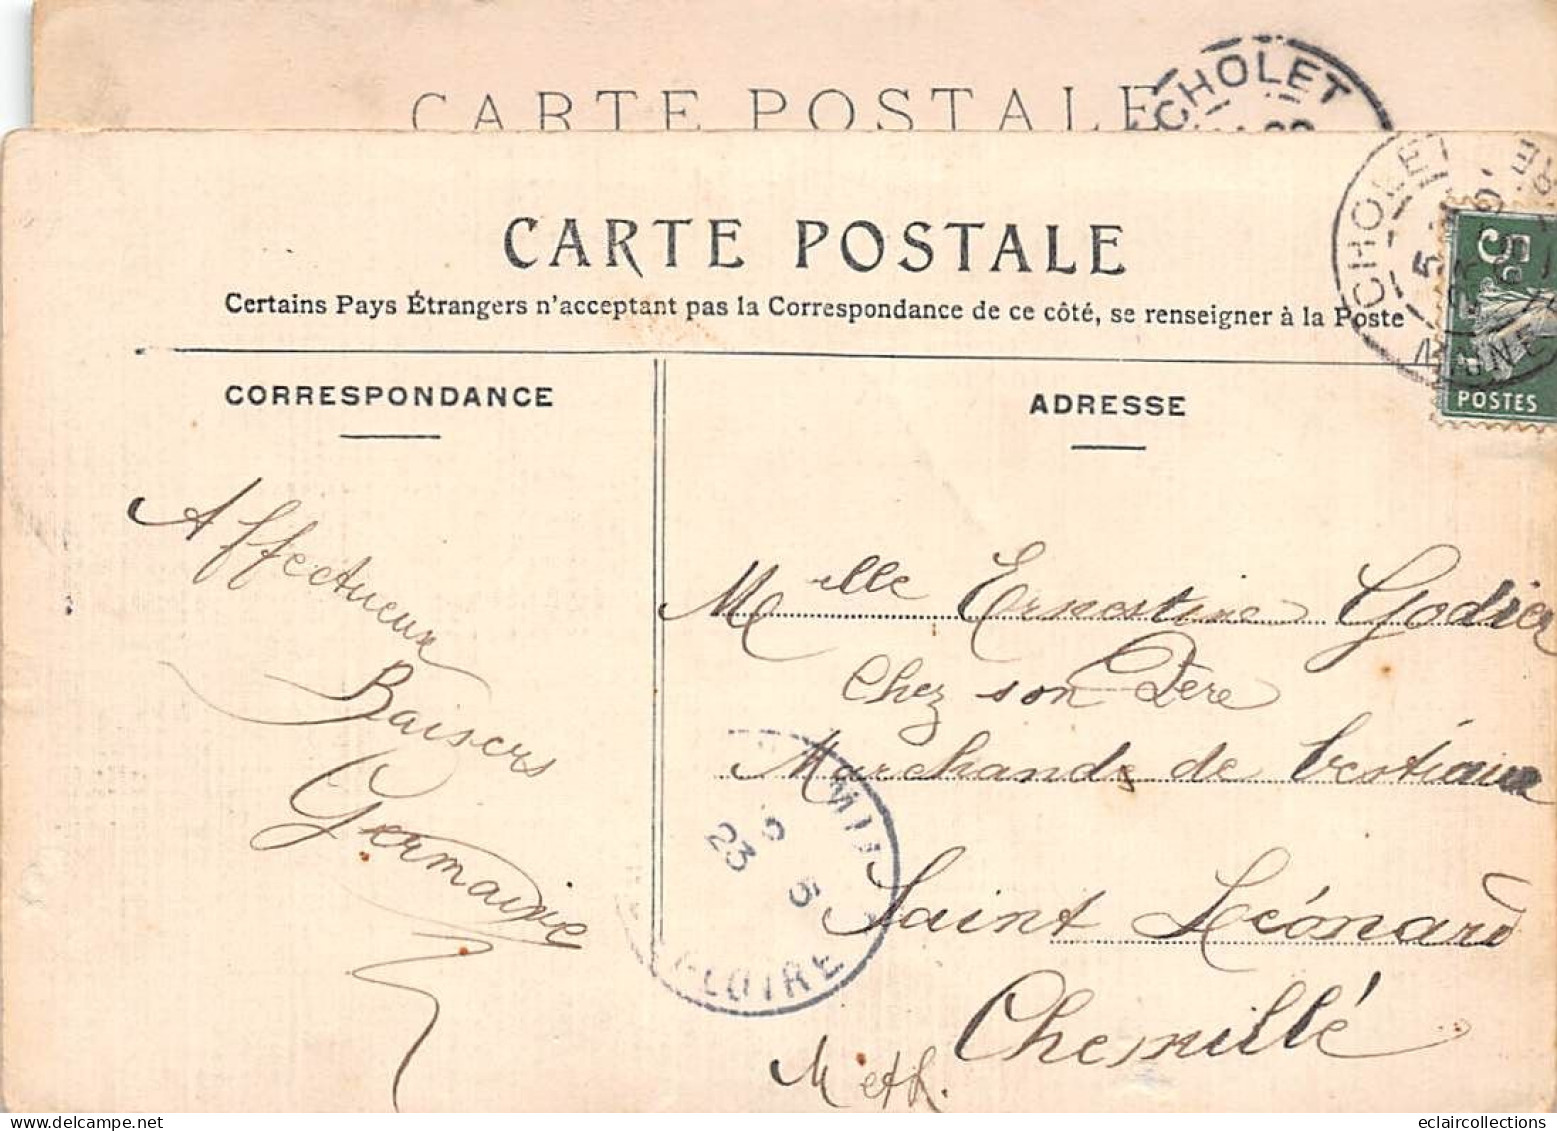 CARTE POSTALE
CHOLET
CARTE POSTALE
Certains Pays Étrangers n'acceptant pas la Correspondance de ce côté, se renseigner à la Poste
CHOLET
MAINE
5
POSTES
CORRESPONDANCE
ADRESSE
Affectueux
Baisers
Germaine
Melle Ernestine Godier
Chez son Père
Marchands de bestiaux
Saint Léonard
Chemillé
M et L.
23 5
LOIRE
eclaircollections